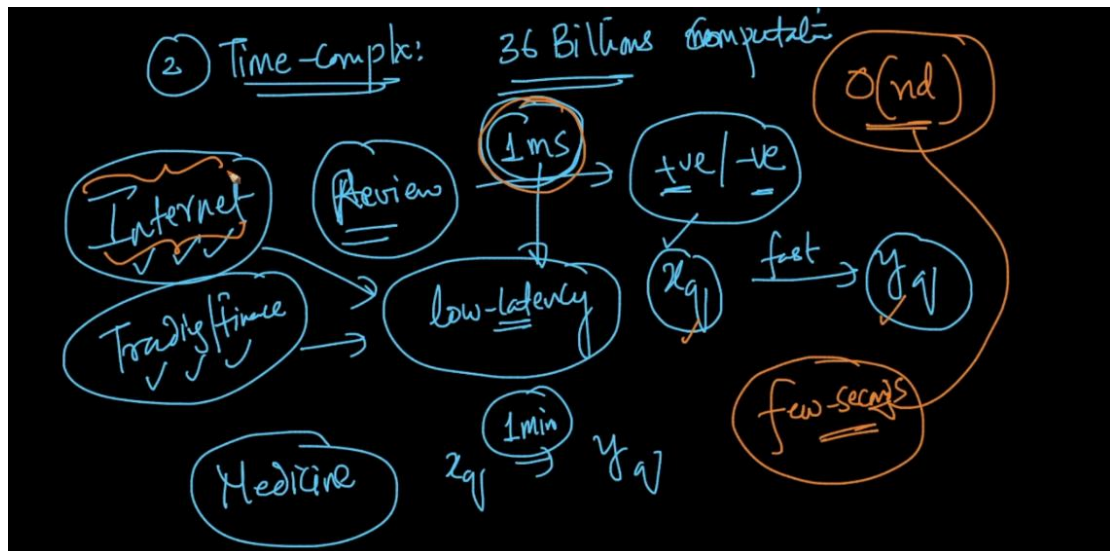 2 Time-Complx: 36 Billions Computati
O(nd)
1ms
Internet Review +ve/-ve
Tradig/finace low-latency xq fast yq
few-seconds
Medicine xq 1min yq